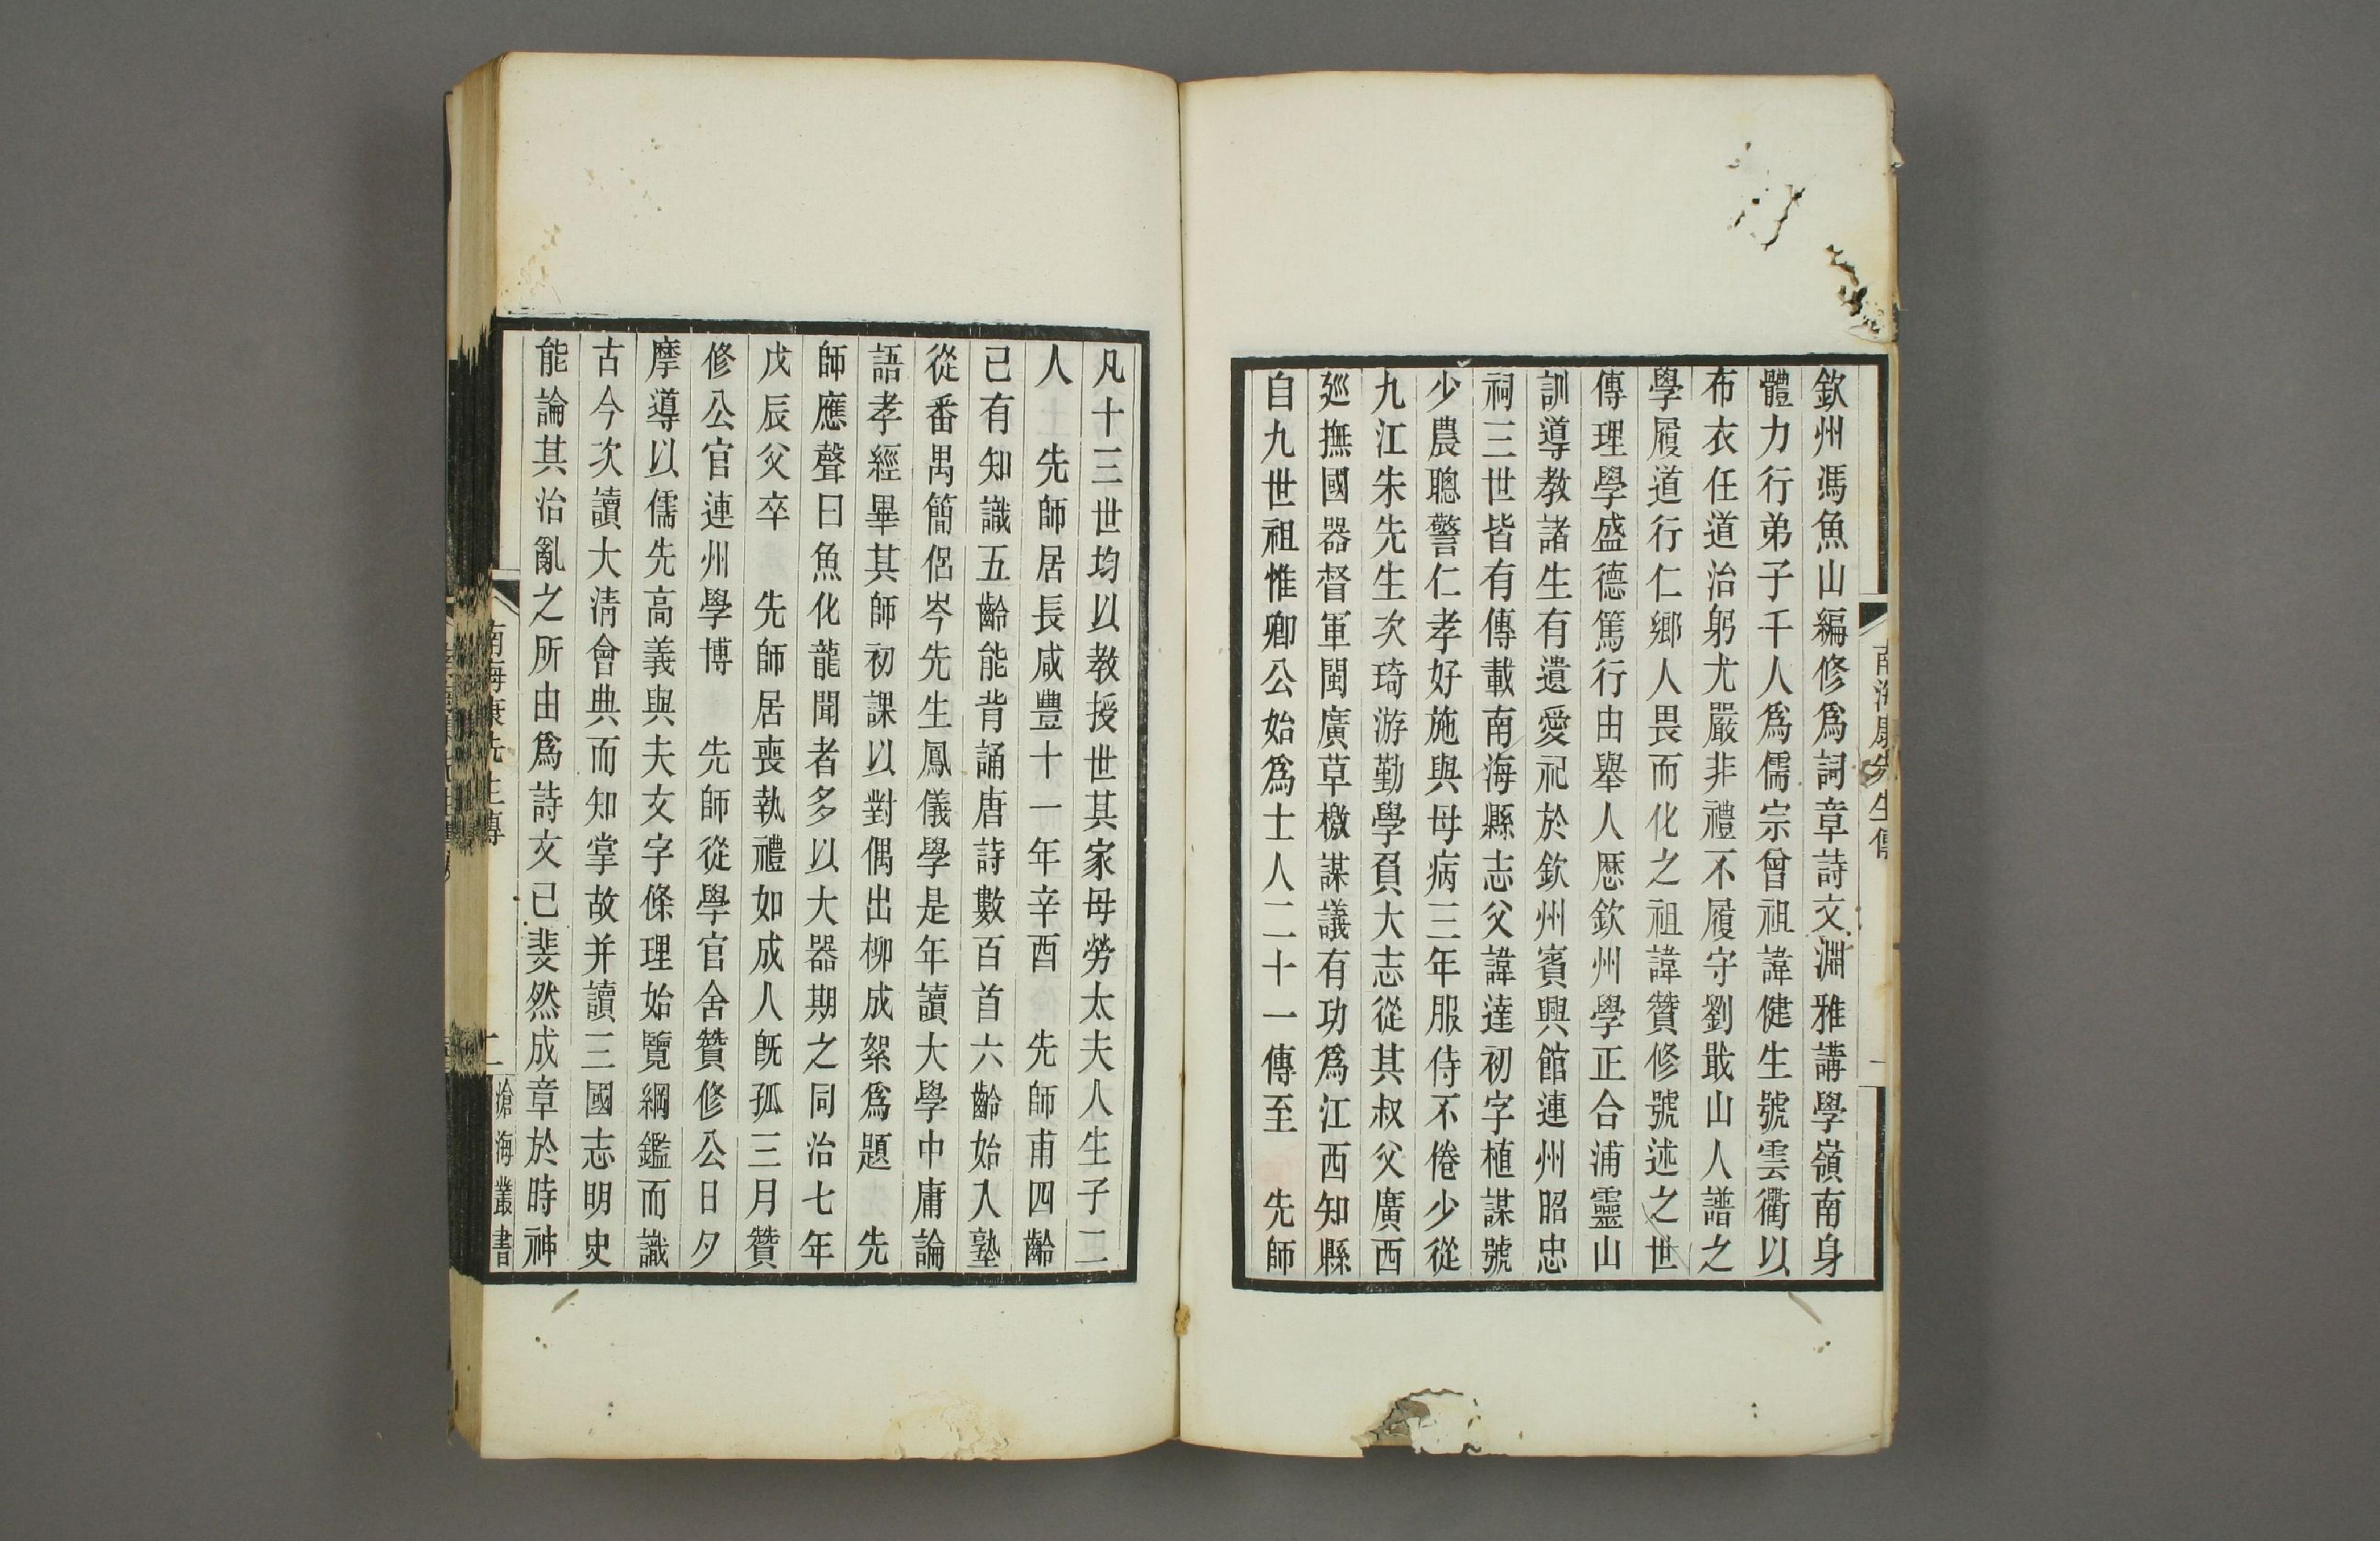 南海康先生傳
一
欽州馮魚山編修爲詞章詩文淵雅講學嶺南身
體力行弟子千人爲儒宗曾祖諱健生號雲衢以
布衣任道治躬尤嚴非禮不履守劉戢山人譜之
學履道行仁鄉人畏而化之祖諱贊修號述之世
傳理學盛德篤行由舉人歷欽州學正合浦靈山
訓導教諸生有遺愛祀於欽州賓興館連州昭忠
祠三世皆有傳載南海縣志父諱達初字植謀號
少農聰警仁孝好施與母病三年服侍不倦少從
九江朱先生次琦游勤學負大志從其叔父廣西
廵撫國器督軍閩廣草檄謀議有功爲江西知縣
自九世祖惟卿公始爲士人二十一傳至　先師
凡十三世均以教授世其家母勞太夫人生子二
人　先師居長咸豐十一年辛酉　先師甫四齡
已有知識五齡能背誦唐詩數百首六齡始入塾
從番禺簡侶岑先生鳳儀學是年讀大學中庸論
語孝經畢其師初課以對偶出柳成絮爲題　先
師應聲曰魚化龍聞者多以大器期之同治七年
戊辰父卒　先師居喪執禮如成人旣孤三月贊
修公官連州學博　先師從學官舍贊修公日夕
摩導以儒先高義與夫文字條理始覽綱鑑而識
古今次讀大清會典而知掌故并讀三國志明史
能論其治亂之所由爲詩文已斐然成章於時神
南海康先生傳
二
滄海叢書